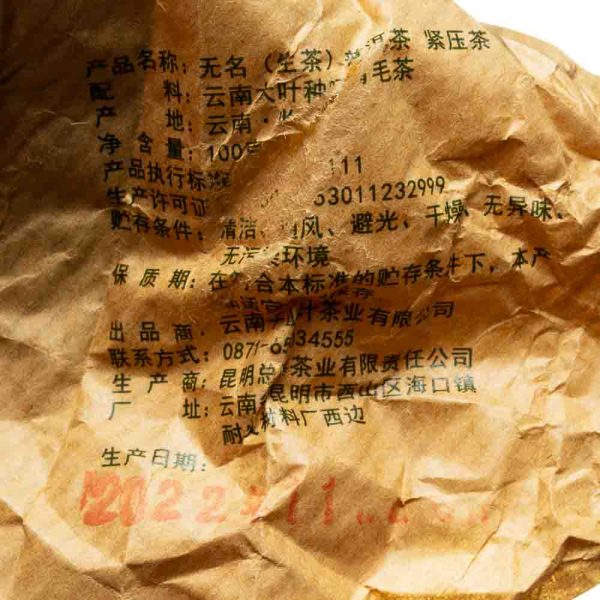 产品名称：无名（生茶）普洱茶 紧压茶
配 料：云南大叶种 毛茶
产 地：云南·
净 含 量：100
产品执行标准 111
生产许可证 53011232999
贮存条件：清洁、通风、避光、干燥、无异味、
无污染环境
保 质 期：在符合本标准的贮存条件下，本产
出 品 商：云南 叶茶业有限公司
联系方式：0871-6 34555
生 产 商：昆明 茶业有限责任公司
厂 址：云南 昆明市西山区海口镇
耐火材料厂西边
生产日期：
2022 11